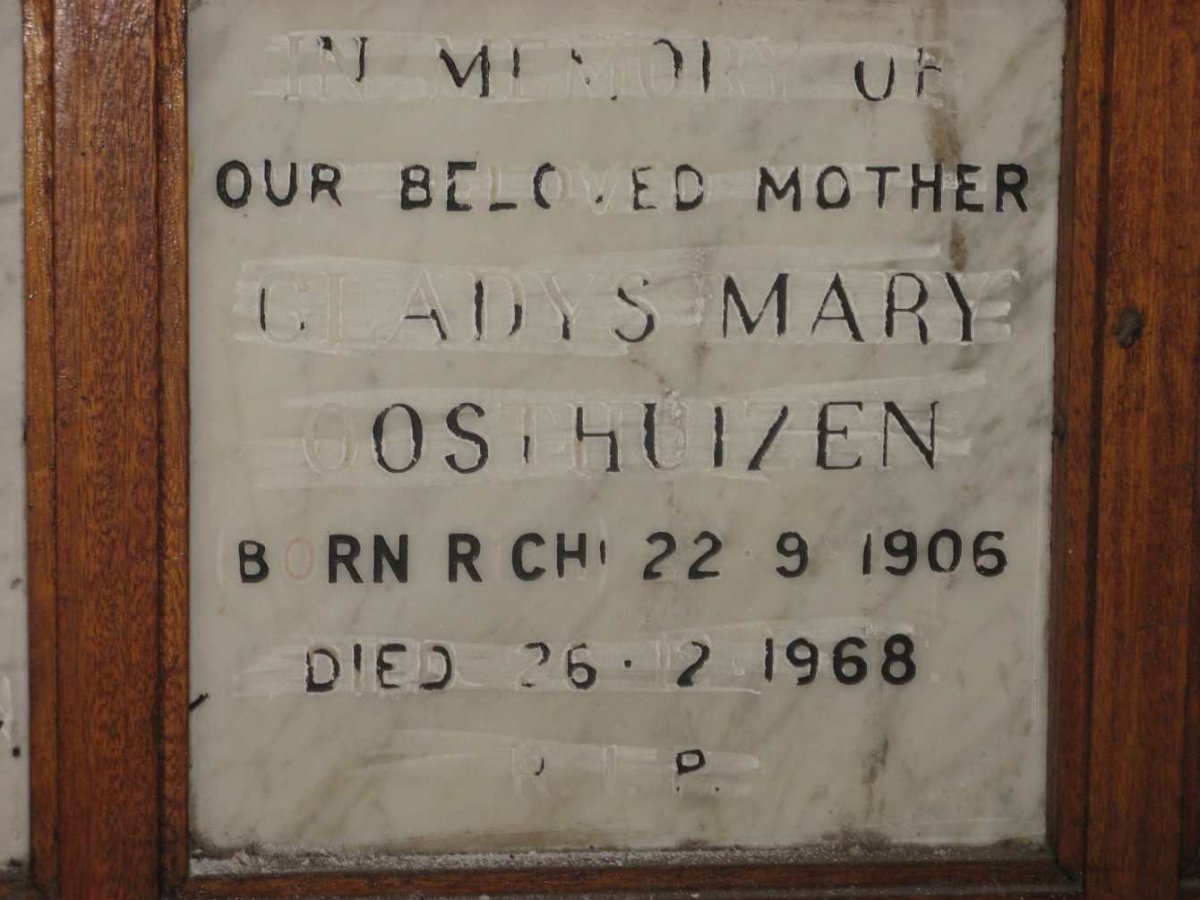 IN MEMORY OF
OUR BELOVED MOTHER
GLADYS MARY
OOSTHUIZEN
BORN 22 · 9 · 1906
DIED 26 · 12 · 1968
R. I. P.